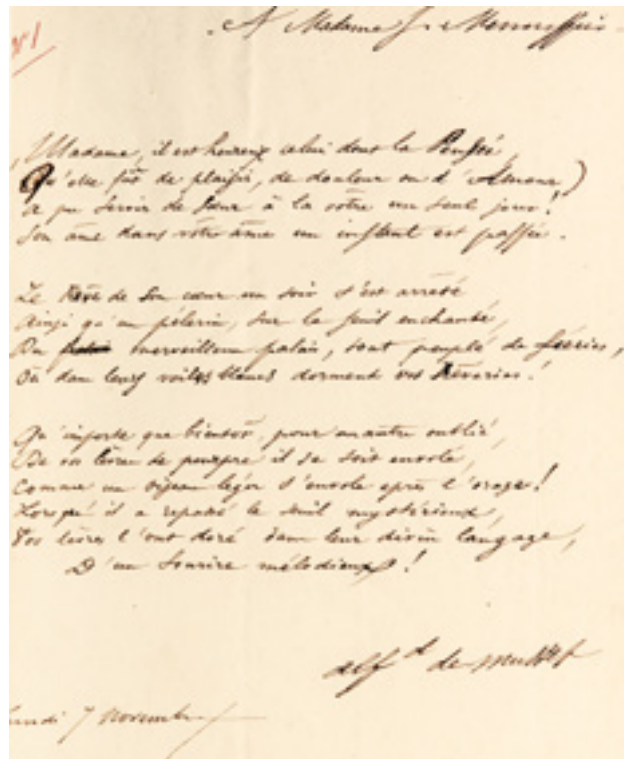 A Madame J. Mennessier
Madame, il est heureux celui dont la Pensée
(Qu'elle fût de plaisir, de douleur ou d'Amour)
A pu servir de Sœur à la vôtre un seul jour!
Son âme dans votre âme un instant est passée.
Le Rêve de Son cœur un soir s'est arrêté
Ainsi qu'un pélerin, sur le seuil enchanté,
Du merveilleux palais, tout peuplé de féeries,
Où dans leurs voiles blancs dorment vos Rêveries!
Qu'importe que bientôt, pour un autre oublié,
De vos lèvres de pourpre il se soit envolé,
Comme un oiseau léger s'envole après l'orage!
Lorsqu'il a repassé le seuil mystérieux,
Vos lèvres l'ont doré dans leur divin langage,
D'un Sourire mélodieux!
Alf^d de Musset
lundi 7 novembre